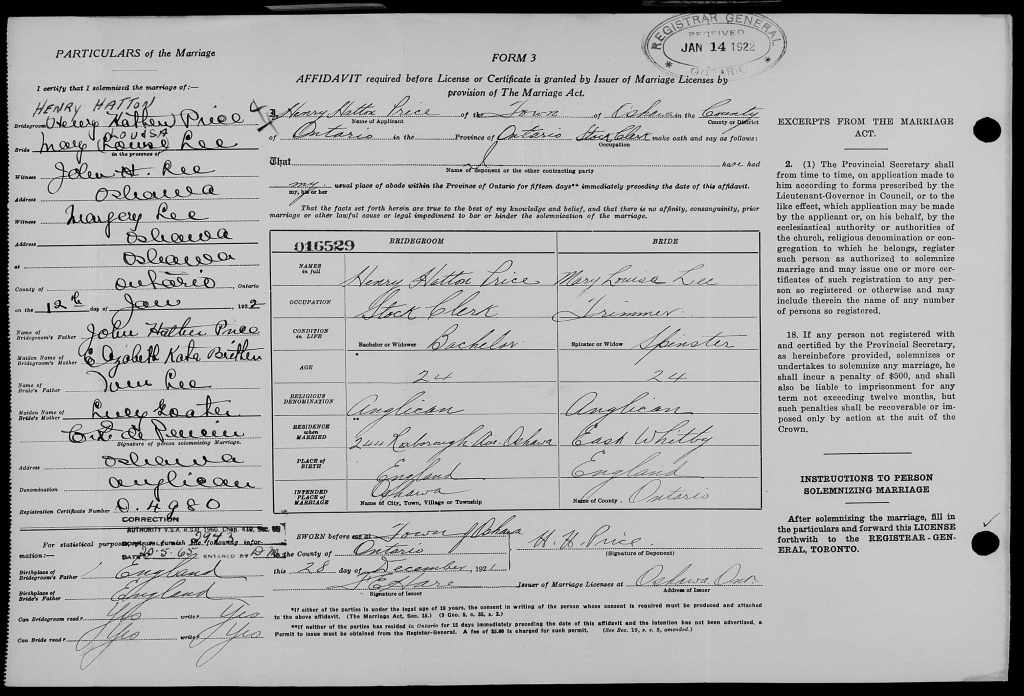 PARTICULARS of the Marriage
I certify that I solemnized the marriage of:—
HENRY HATTON
Bridegroom Henry Hatton Price
LOUISA
Bride Mary Louise Lee
in the presence of
Witness John H. Lee
Address Oshawa
Witness Margery Lee
Address Oshawa
at Oshawa
County of Ontario, Ontario
on the 12th day of Jan 1922
Name of Bridegroom's Father John Hatton Price
Maiden Name of Bridegroom's Mother Elizabeth Kate Britten
Name of Bride's Father Tom Lee
Maiden Name of Bride's Mother Lucy
Signature of person solemnizing Marriage.
Address Oshawa
Denomination Anglican
Registration Certificate Number D. 4980
CORRECTION
For statistical purposes
mation:— DATE 20-5-65 ENTERED BY
Birthplace of Bridegroom's Father England
Birthplace of Bride's Father England
Can Bridegroom read? Yes write? Yes
Can Bride read? Yes write? Yes
REGISTRAR GENERAL
RECEIVED
JAN 14 1922
ONTARIO
FORM 3
AFFIDAVIT required before License or Certificate is granted by Issuer of Marriage Licenses by
provision of The Marriage Act.
I, Henry Hatton Price of the Town of Oshawa in the County
Name of Applicant County or District
of Ontario in the Province of Ontario Stock Clerk make oath and say as follows:
Occupation
That I have had
Name of deponent or the other contracting party
my usual place of abode within the Province of Ontario for fifteen days** immediately preceding the date of this affidavit.
my, his or her
That the facts set forth herein are to the best of my knowledge and belief, and that there is no affinity, consanguinity, prior
marriage or other lawful cause or legal impediment to bar or hinder the solemnization of the marriage.
016529 BRIDEGROOM BRIDE
NAMES in full Henry Hatton Price Mary Louisa Lee
OCCUPATION Stock Clerk Trimmer
CONDITION in LIFE Bachelor or Widower Bachelor Spinster or Widow Spinster
AGE 24 24
RELIGIOUS DENOMINATION Anglican Anglican
RESIDENCE when MARRIED 244 Roxborough Ave. Oshawa East Whitby
PLACE OF BIRTH England England
INTENDED PLACE of MARRIAGE Oshawa Ontario
Name of City, Town, Village or Township Name of County
SWORN before me at Town of Oshawa
in the County of Ontario H. H. Price
(Signature of Deponent)
this 28 day of December 1921
Issuer of Marriage Licenses at Oshawa Ont.
Signature of Issuer Address of Issuer
*If either of the parties is under the legal age of 18 years, the consent in writing of the person whose consent is required must be produced and attached
to the above affidavit. (The Marriage Act, Sec. 15.)
**If neither of the parties has resided in Ontario for 15 days immediately preceding the date of this affidavit and the intention has not been advertised, a
Permit to issue must be obtained from the Registrar-General. A fee of is charged for such permit.
EXCERPTS FROM THE MARRIAGE
ACT.
2. (1) The Provincial Secretary shall
from time to time, on application made to
him according to forms prescribed by the
Lieutenant-Governor in Council, or to the
like effect, which application may be made
by the applicant or, on his behalf, by the
ecclesiastical authority or authorities of
the church, religious denomination or con-
gregation to which he belongs, register
such person as authorized to solemnize
marriage and may issue one or more cer-
tificates of such registration to any per-
son so registered or otherwise and may
include therein the name of any number
of persons so registered.
18. If any person not registered with
and certified by the Provincial Secretary,
as hereinbefore provided, solemnizes or
undertakes to solemnize any marriage, he
shall incur a penalty of $500, and shall
also be liable to imprisonment for any
term not exceeding twelve months, but
such penalties shall be recoverable or im-
posed only by action at the suit of the
Crown.
INSTRUCTIONS TO PERSON
SOLEMNIZING MARRIAGE
After solemnizing the marriage, fill in
the particulars and forward this LICENSE
forthwith to the REGISTRAR-GEN-
ERAL, TORONTO.